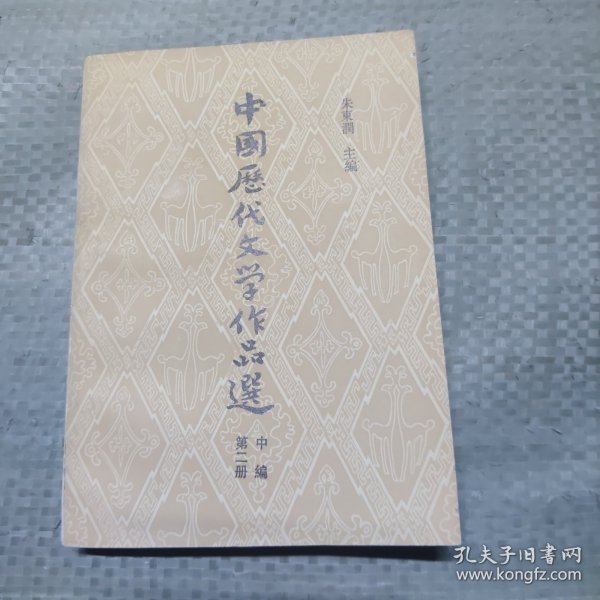 朱東潤 主編
中國歷代文学作品選
中編
第二册
孔夫子旧書网
www.kongfz.com